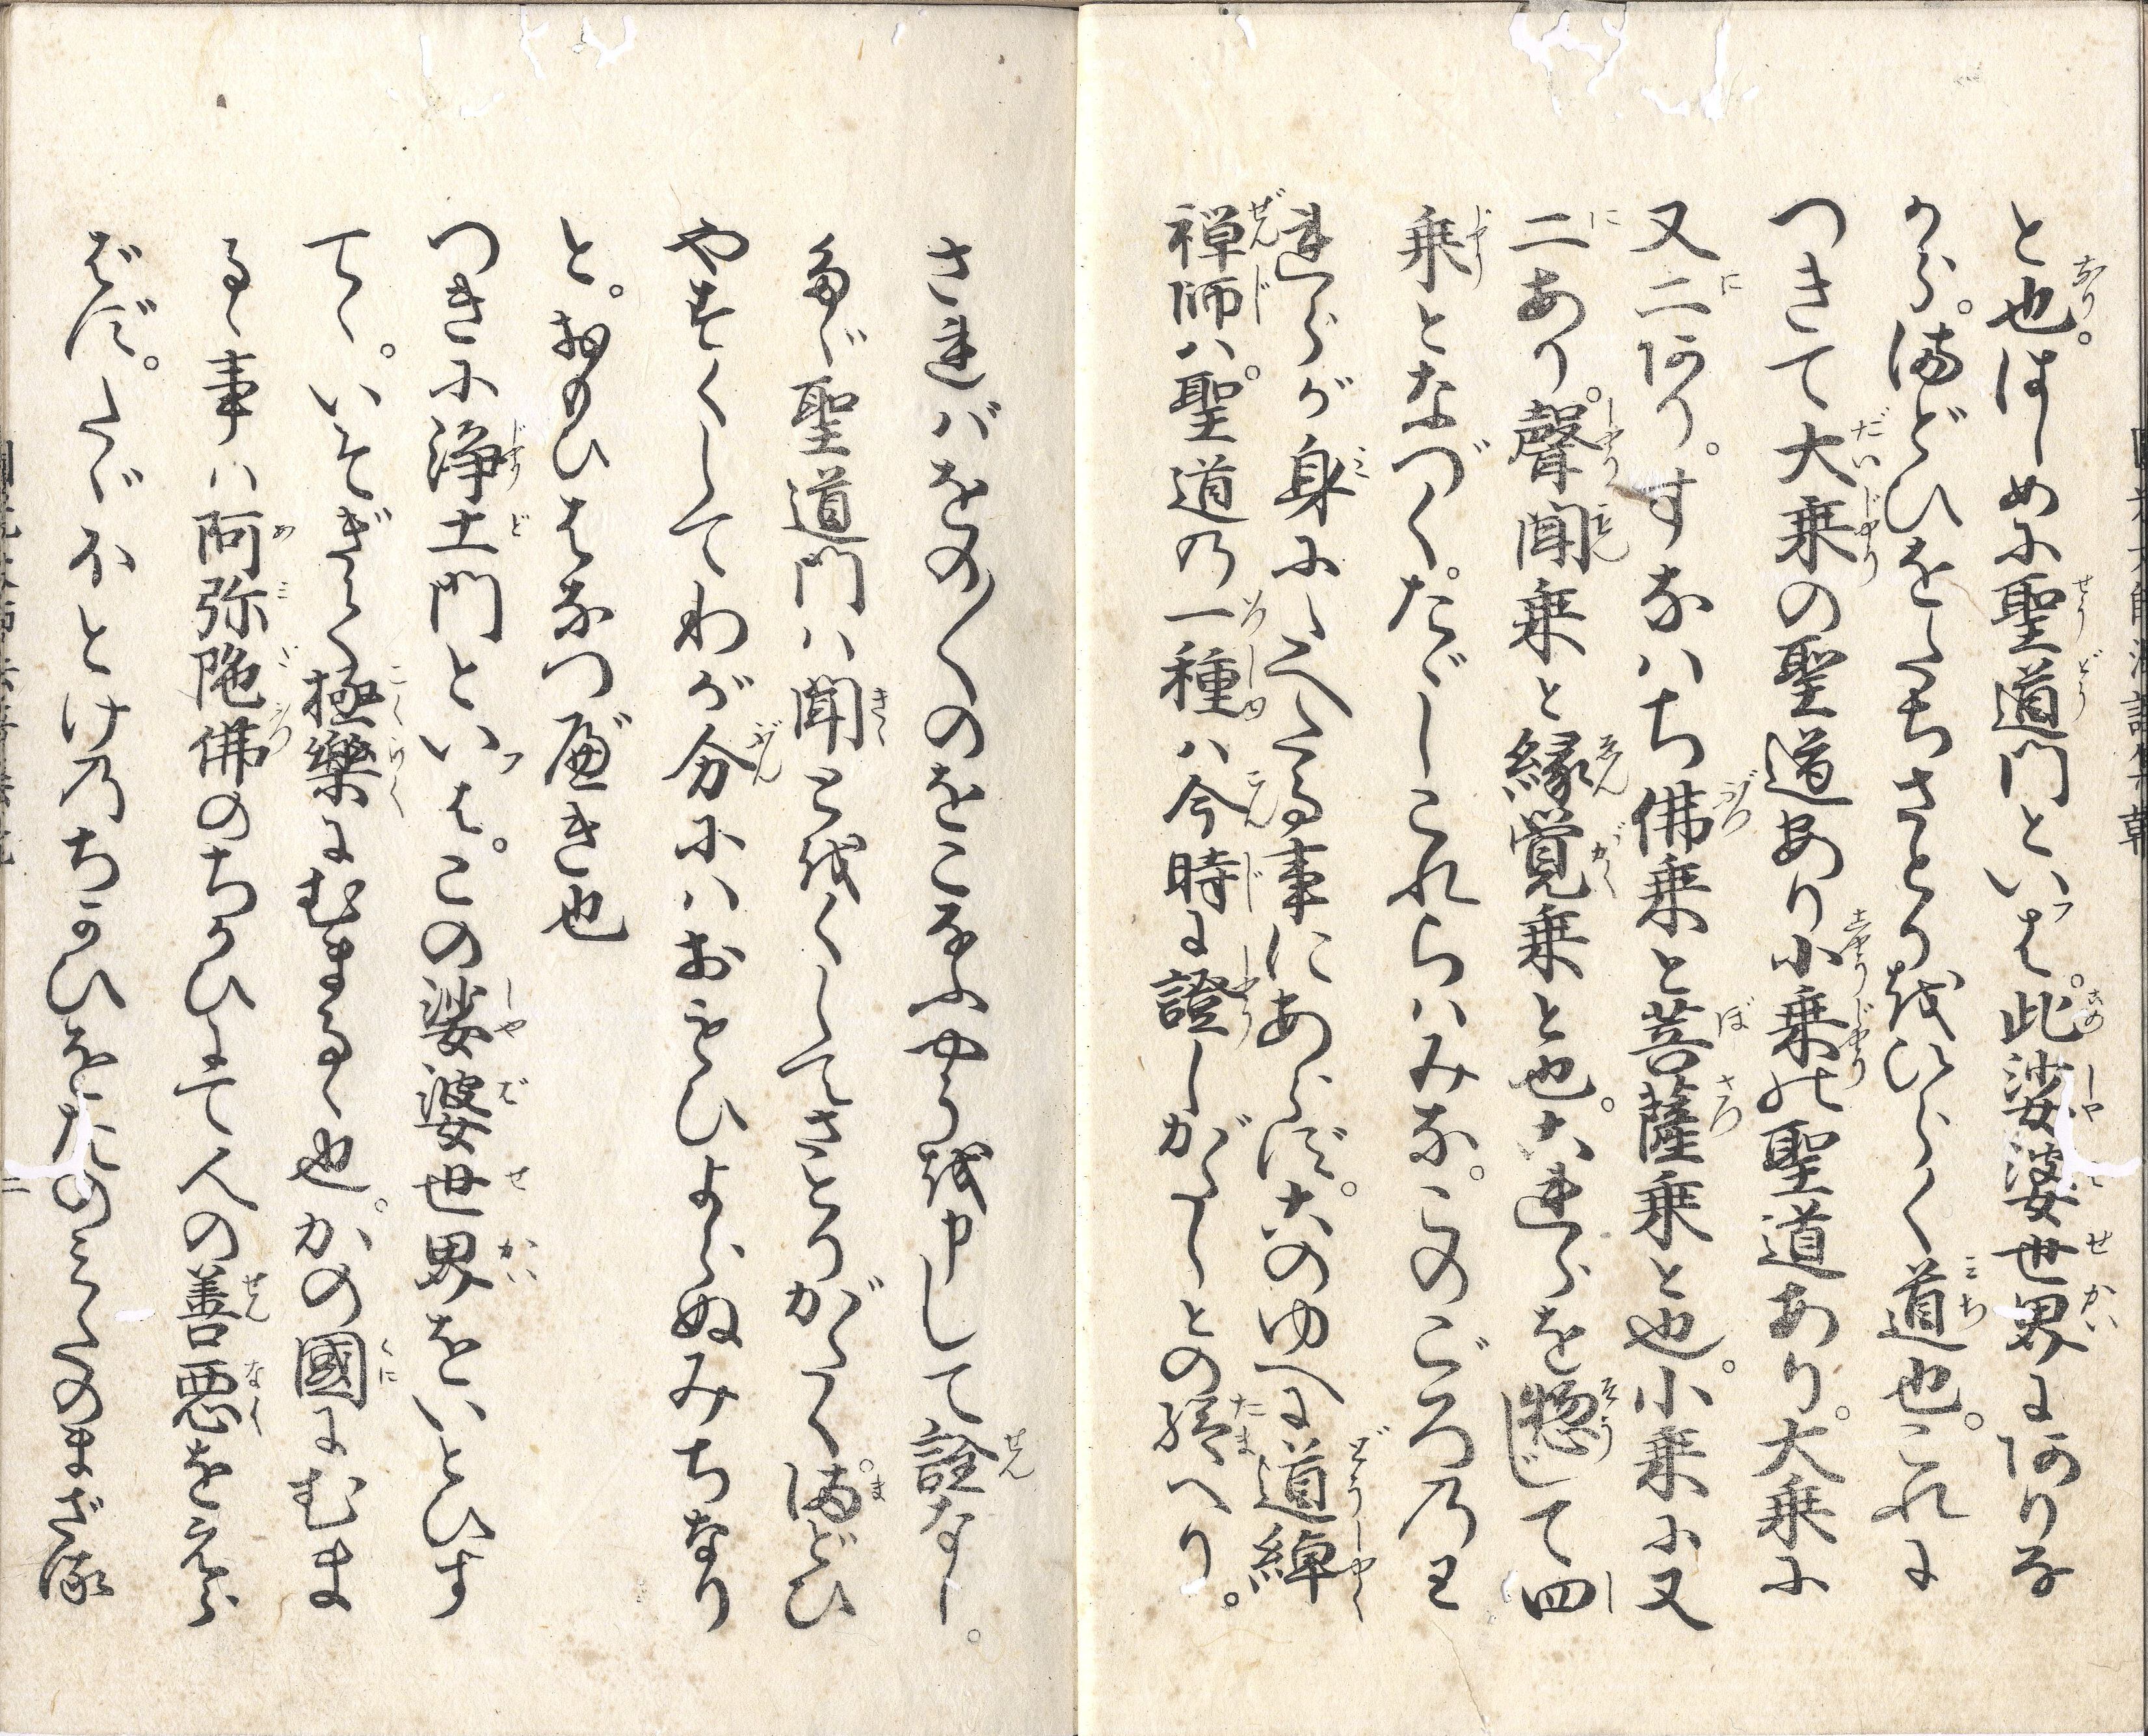 と也。はじめに聖道門といつぱ。此娑婆世界にありな
がら。まどひをたちさとりをひらく道也。これに
つきて大乗の聖道あり小乗の聖道あり。大乗に
又二あり。すなハち佛乗と菩薩乗と也。小乗に又
二あり。聲聞乗と縁覚乗と也。これらを惣じて四
乗となづく。たゞしこれらハみな。このごろのわ
れらが身にたへたる事にあらず。このゆへに道綽
禅師ハ。聖道の一種ハ今時に證しがたしとの給へり。
さればをの〱のをこなふやうを申して詮なし。
たゞ聖道門ハ聞とをくしてさとりがたく。まどひ
やすくしてわが分にハおもひよらぬみちなり
と。おもひはなつべき也
つきに浄土門といつは。この娑婆世界をいとひす
てゝ。いそぎて極樂にむまるゝ也。かの國にむま
るゝ事ハ阿弥陀佛のちかひにて人の善悪をえら
ばず。たゞほとけのちかひをたのみたのまざる